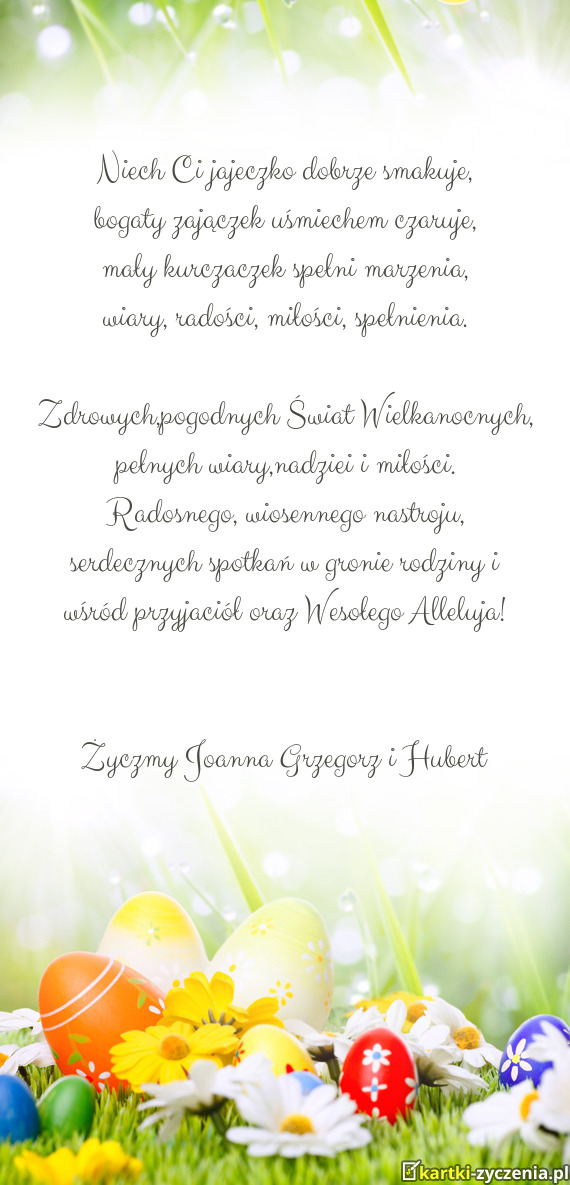 Niech Ci jajeczko dobrze smakuje,
bogaty zajączek uśmiechem czaruje,
mały kurczaczek spełni marzenia,
wiary, radości, miłości, spełnienia.
Zdrowych,pogodnych Świat Wielkanocnych,
pełnych wiary,nadziei i miłości.
Radosnego, wiosennego nastroju,
serdecznych spotkań w gronie rodziny i
wśród przyjaciół oraz Wesołego Alleluja!
Życzmy Joanna Grzegorz i Hubert
kartki-zyczenia.pl